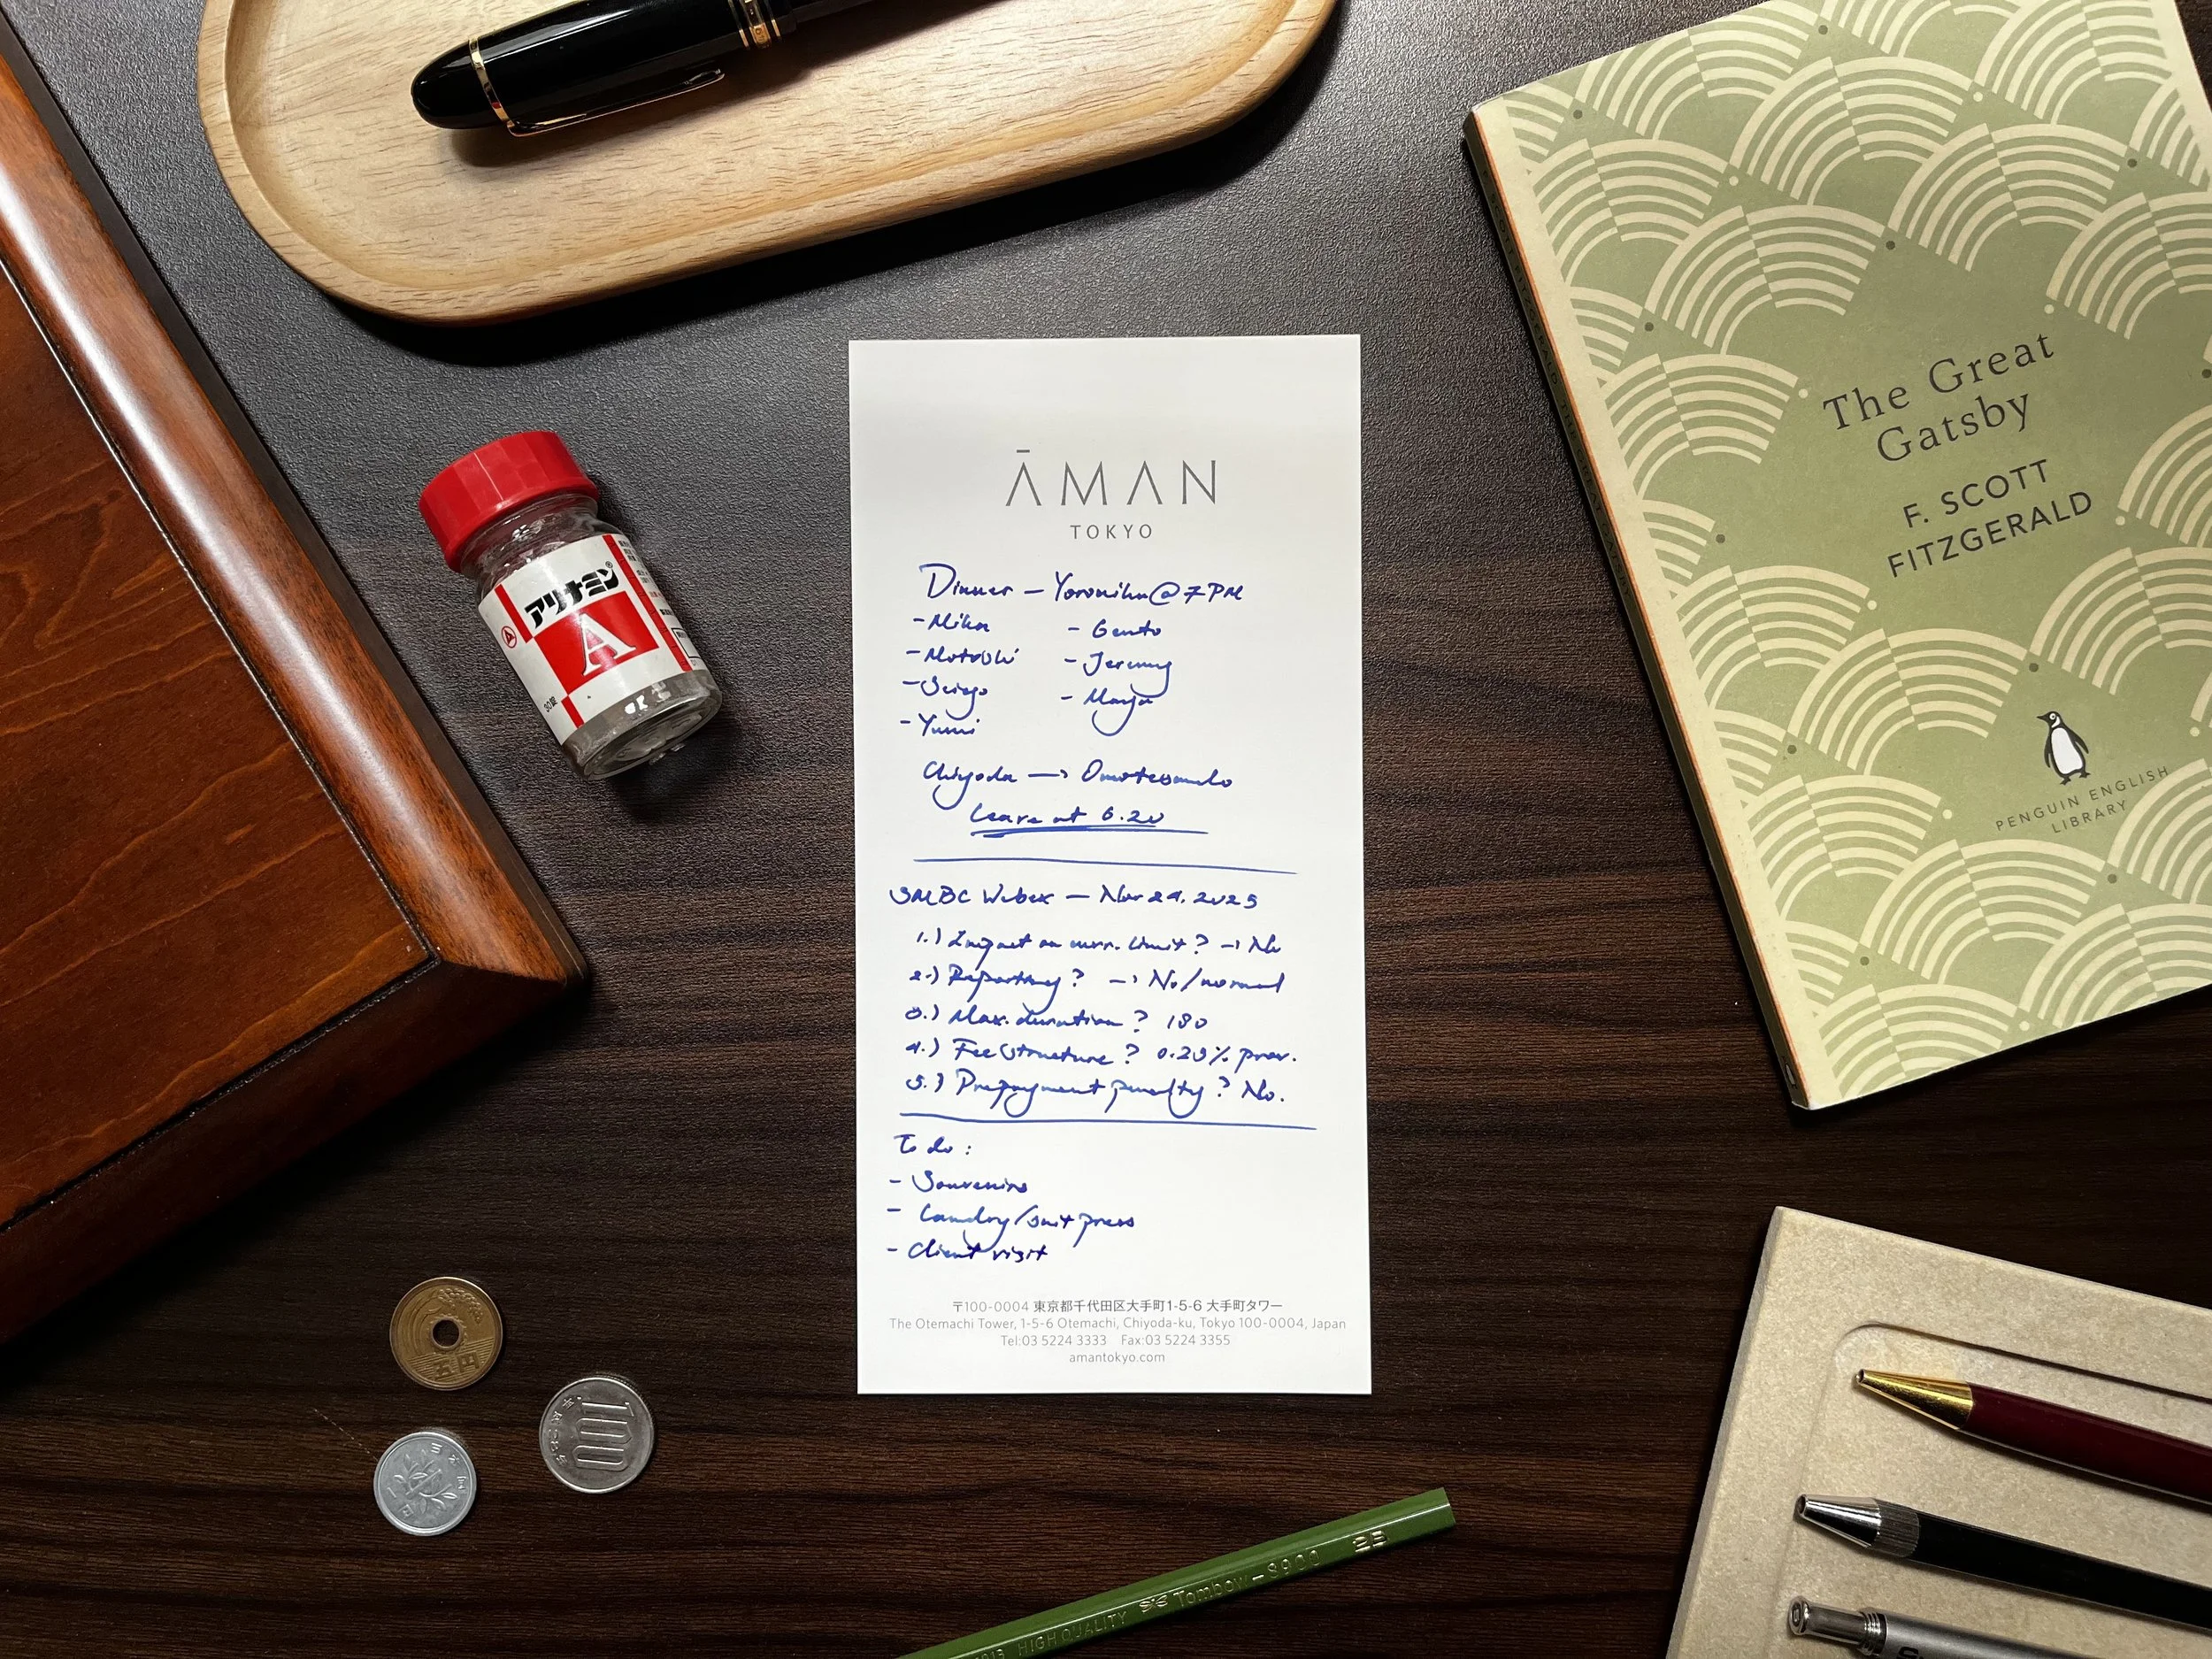 アリナミン
A
30錠
ĀMAN
TOKYO
Dinner – Yoroniku @ 7 PM
- Mika - Gento
- Motoshi - Jeremy
- Seigo - Manja
- Yumi
Chiyoda → Omotesando
Leave at 6.20
SMBC Webex – Nov 24. 2025
1.) Impact on curr. limit? → No
2.) Reporting? → No/normal
3.) Max. duration? 180
4.) Fee structure? 0.25%
5.) Prepayment penalty? No.
To do:
- Souvenirs
- Laundry/suit press
- Client visit
〒100-0004 東京都千代田区大手町1-5-6 大手町タワー
The Otemachi Tower, 1-5-6 Otemachi, Chiyoda-ku, Tokyo 100-0004, Japan
Tel:03 5224 3333 Fax:03 5224 3355
amantokyo.com
The Great
Gatsby
F. SCOTT
FITZGERALD
PENGUIN ENGLISH
LIBRARY
100
日本国
HIGH QUALITY Tombow-8900 2B